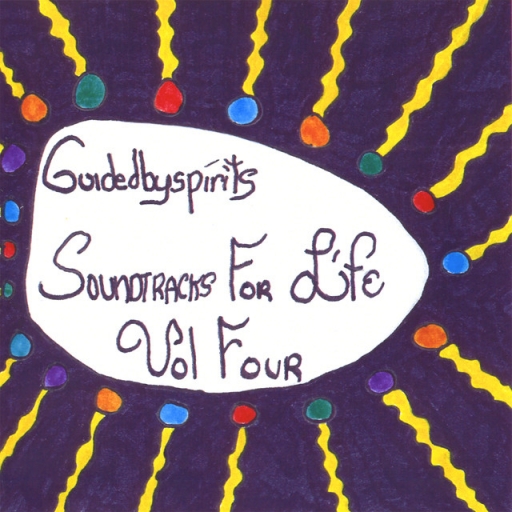 Guidedbyspirits
Soundtracks For Life
Vol Four